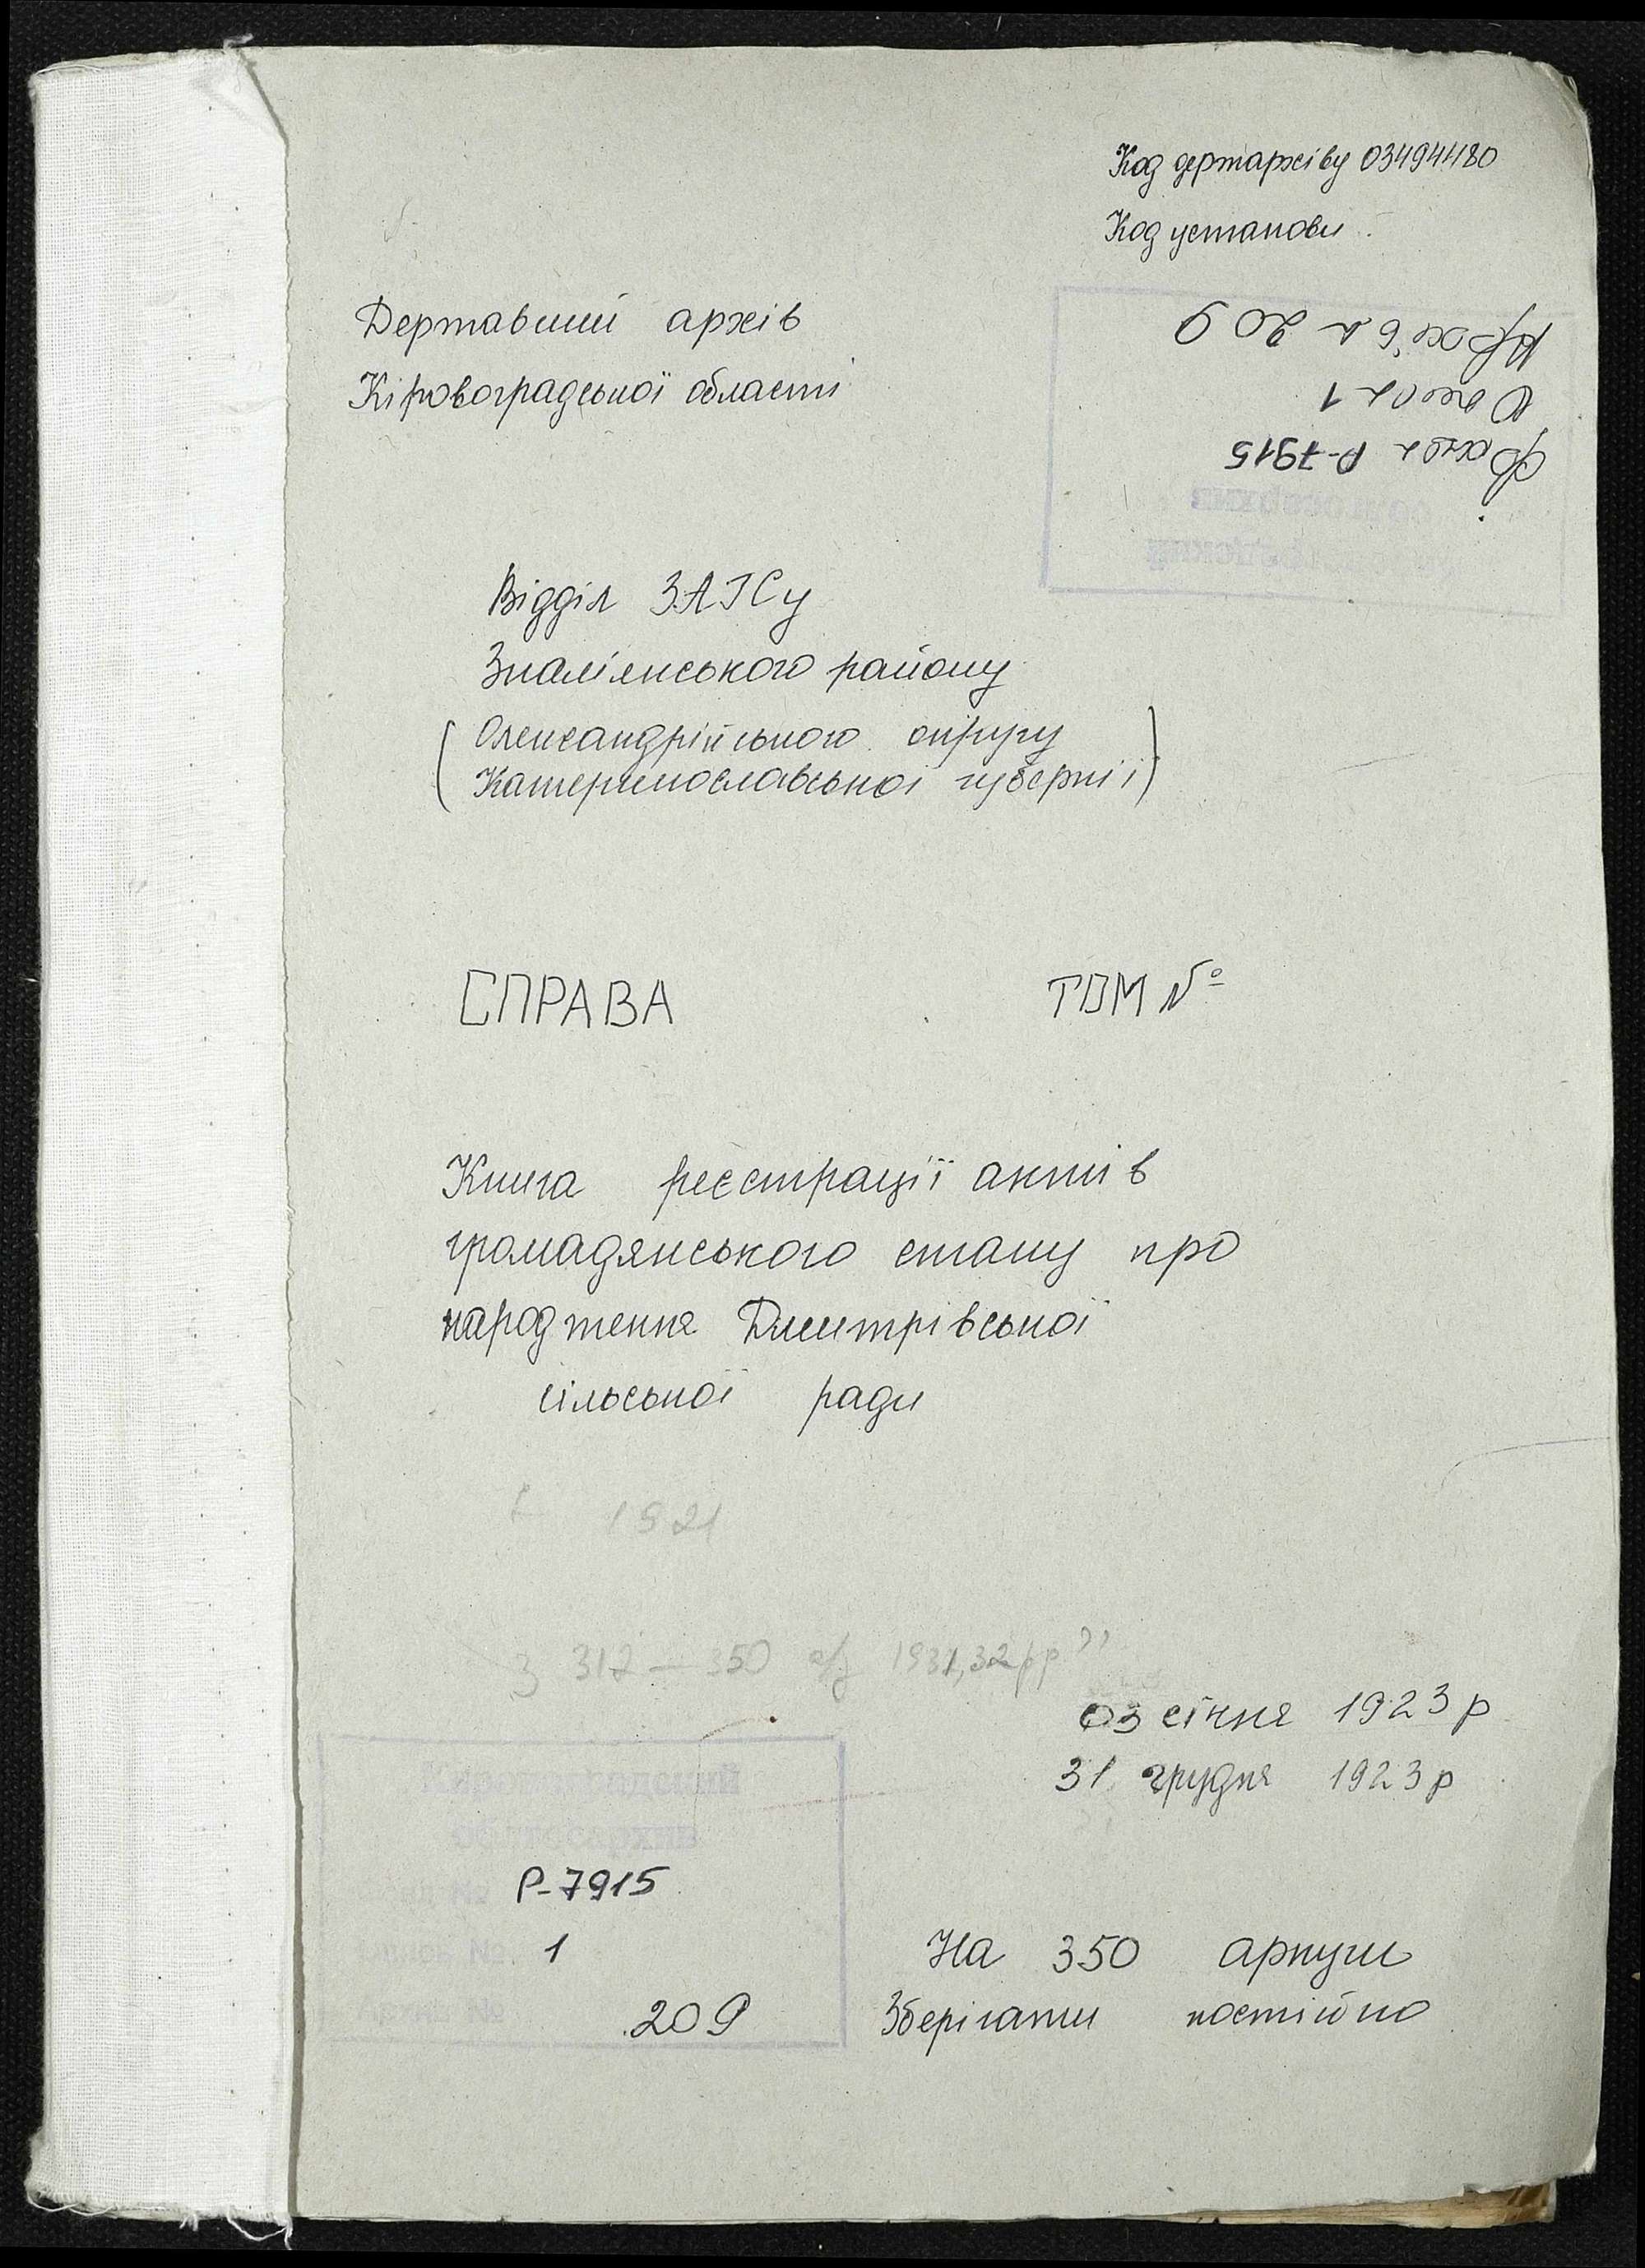 Код держархіву 03494480
Код установи
Державний архів
Кіровоградської області
Фонд Р-7915
Опись 1
Архів № 209
Відділ ЗАГСу
Знам'янського району
(Олександрійського округу
Катеринославської губернії)
СПРАВА ТОМ №
Книга реєстрації актів
громадянського стану про
народження Дмитрівської
сільської ради
1921
З 312 – 350 а/з 1931,32 рр
03 січня 1923 р
31 грудня 1923 р
Р-7915
1
209
На 350 аркуши
Зберігати постійно